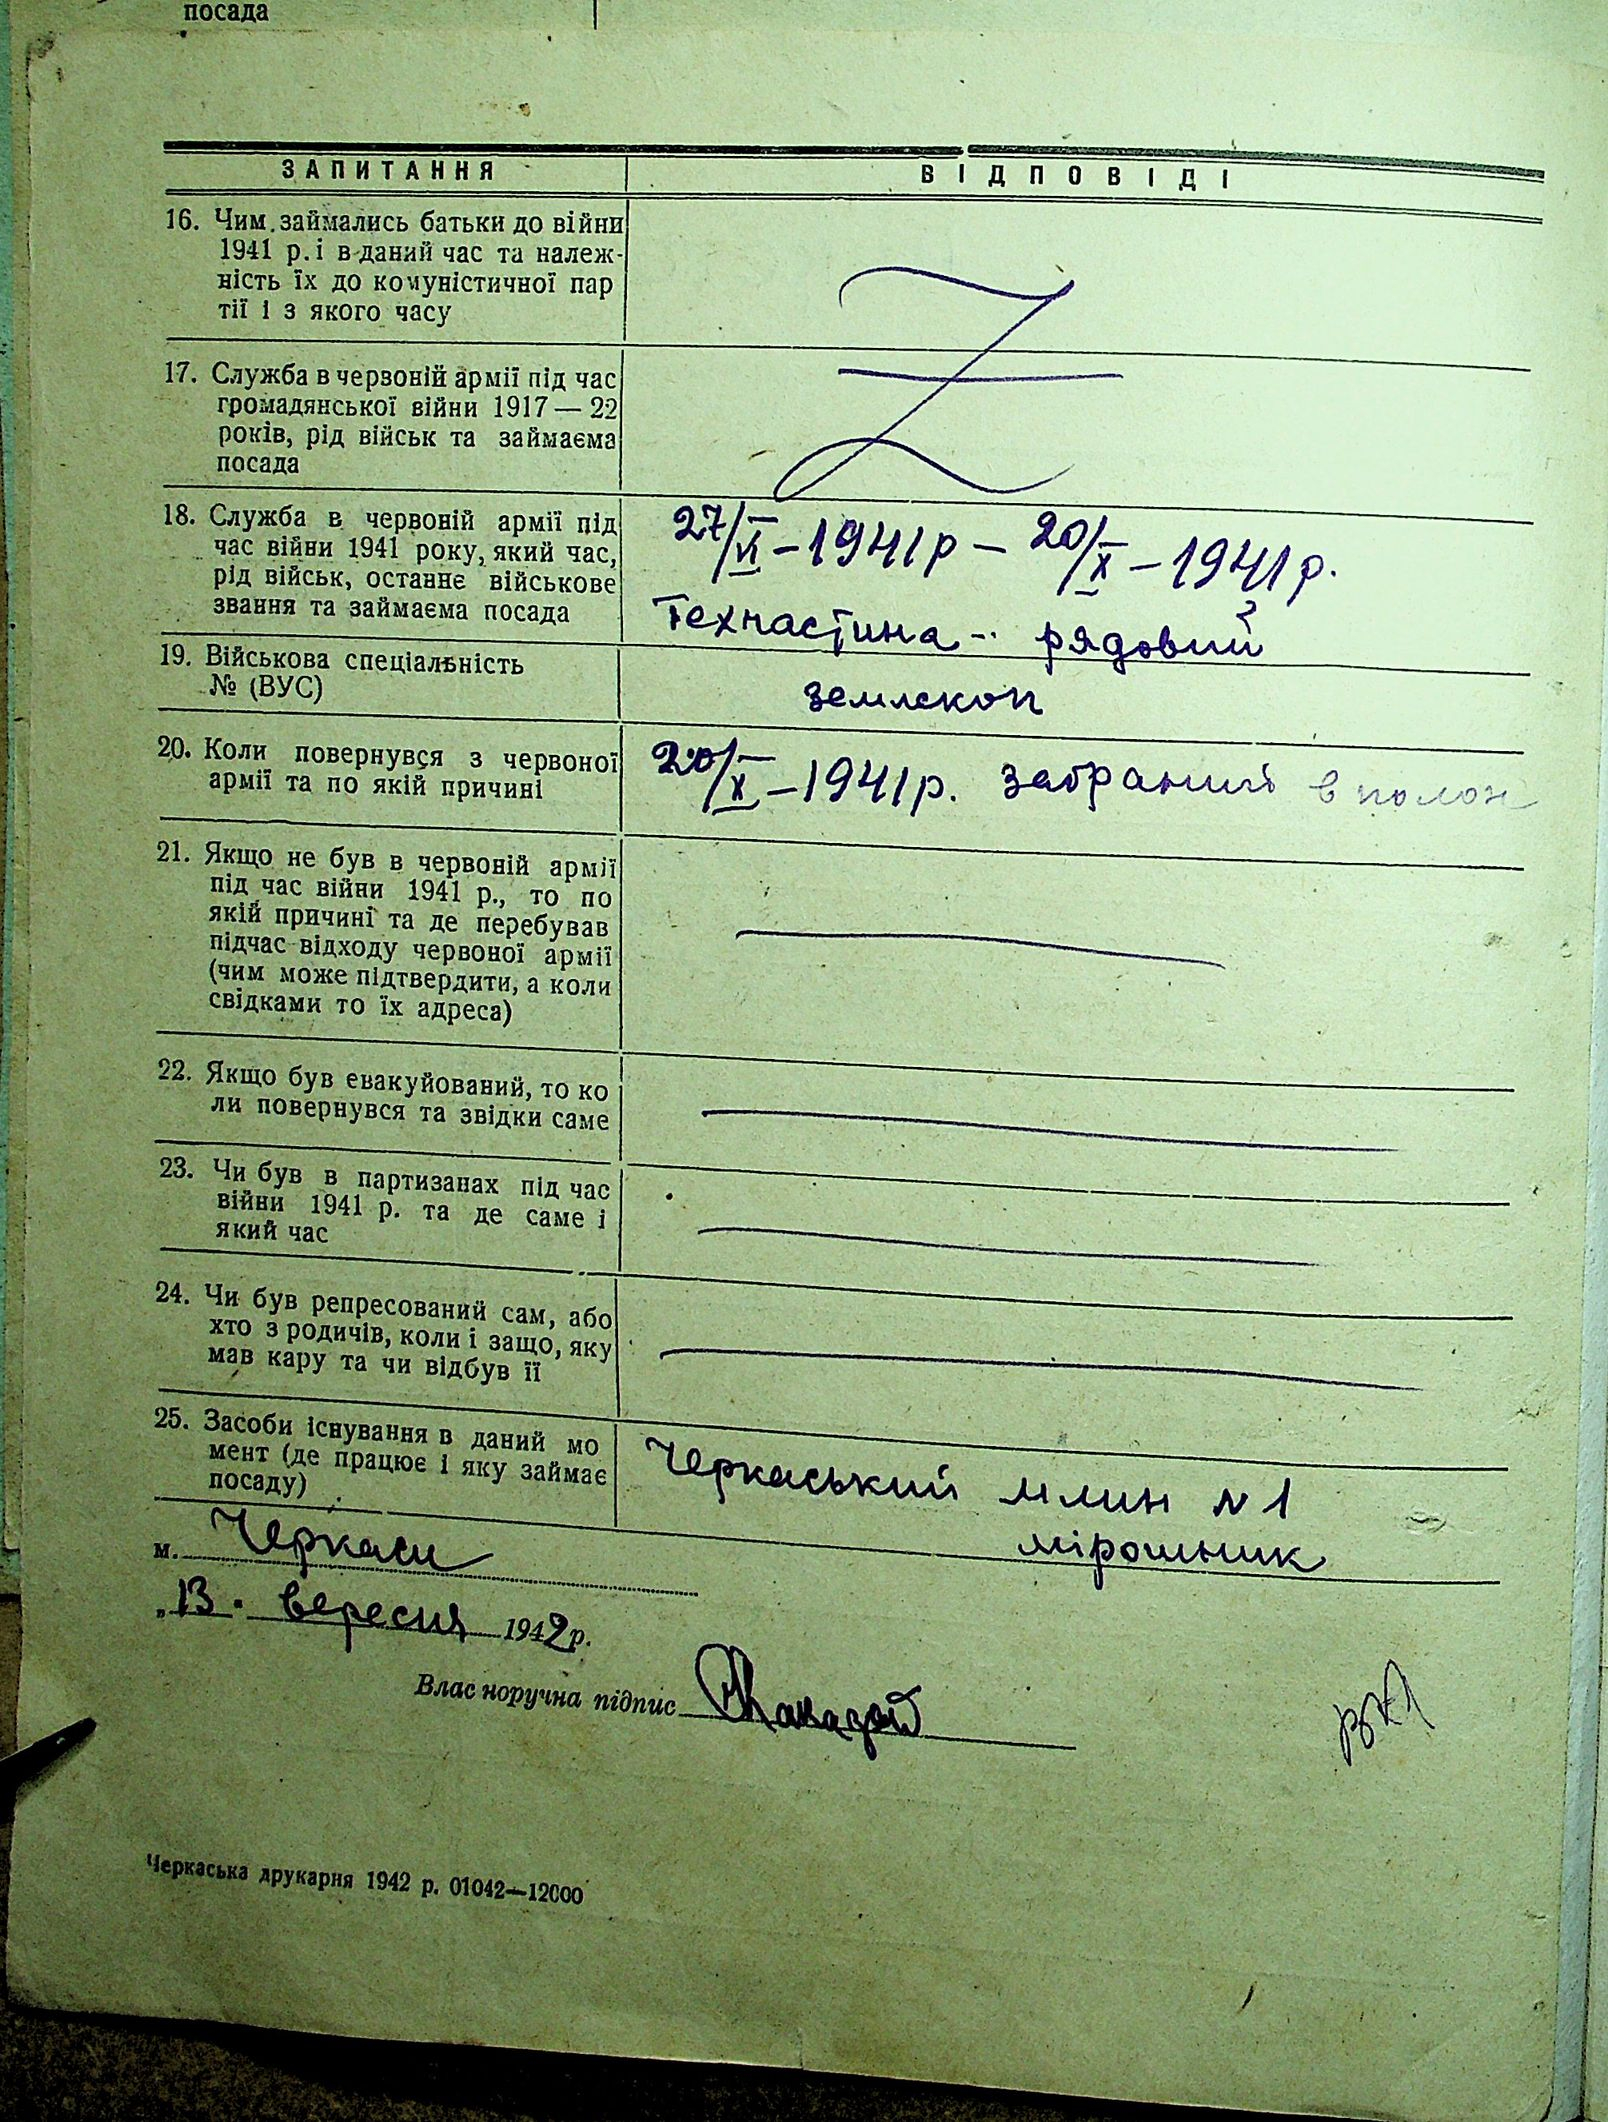 посада
ЗАПИТАННЯ
ВІДПОВІДІ
16. Чим займались батьки до війни
1941 р. і в даний час та належ-
ність їх до комуністичної пар
тії і з якого часу
17. Служба в червоній армії під час
громадянської війни 1917 — 22
років, рід військ та займаєма
посада
18. Служба в червоній армії під
час війни 1941 року, який час,
рід військ, останнє військове
звання та займаєма посада
27/VI – 1941 р – 20/X – 1941 р.
Техчастина - рядовий
19. Військова спеціальність
№ (ВУС)
землекоп
20. Коли повернувся з червоної
армії та по якій причині
20/X – 1941 р. забраний в полон
21. Якщо не був в червоній армії
під час війни 1941 р., то по
якій причині та де перебував
підчас відходу червоної армії
(чим може підтвердити, а коли
свідками то їх адреса)
22. Якщо був евакуйований, то ко
ли повернувся та звідки саме
23. Чи був в партизанах під час
війни 1941 р. та де саме і
який час
24. Чи був репресований сам, або
хто з родичів, коли і защо, яку
мав кару та чи відбув її
25. Засоби існування в даний мо
мент (де працює і яку займає
посаду)
Черкаський млин № 1
мірошник
м. Черкаси
„13. вересня 1942 р.
Власноручна підпис
Черкаська друкарня 1942 р. 01042—12000